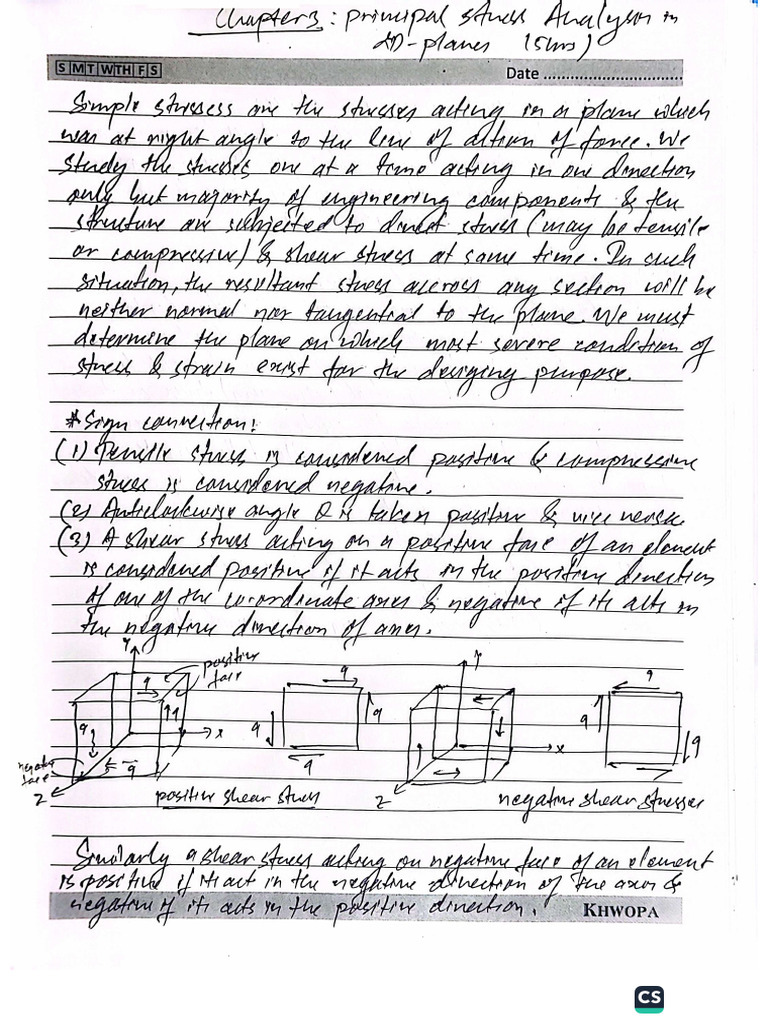 Chapter 3: principal stress Analysis in
2D-planes (5hrs)
S M T W TH F S
Date ................................
Simple stressess are the stresses acting in a plane which
was at right angle to the line of action of force. We
study the stresses one at a time acting in one direction
only but majority of engineering components & the
structure are subjected to direct stress (may be tensile
or compressive) & shear stress at same time. In such
situation, the resultant stress accross any section will be
neither normal nor tangential to the plane. We must
determine the plane on which most severe condition of
stress & strain exist for the desiging purpose.
* Sign convection:
(1) Tensile stress is considered positive & compressive
stress is considered negative.
(2) Anticlockwise angle θ is taken positive & vice versa.
(3) A shear stress acting on a positive face of an element
is considered positive if it acts in the positive direction
of one of the co-ordinate axes & negative if its acts in
the negative direction of axes.
y
positive
face
q
q
q
q
x
negative
face
z
q
q
q
q
positive shear stress
y
x
z
q
q
q
negative shear stresses
Similarly a shear stress acting on negative face of an element
is positive if it act in the negative direction of the axes &
negative if it acts in the positive direction.
KHWOPA
CS